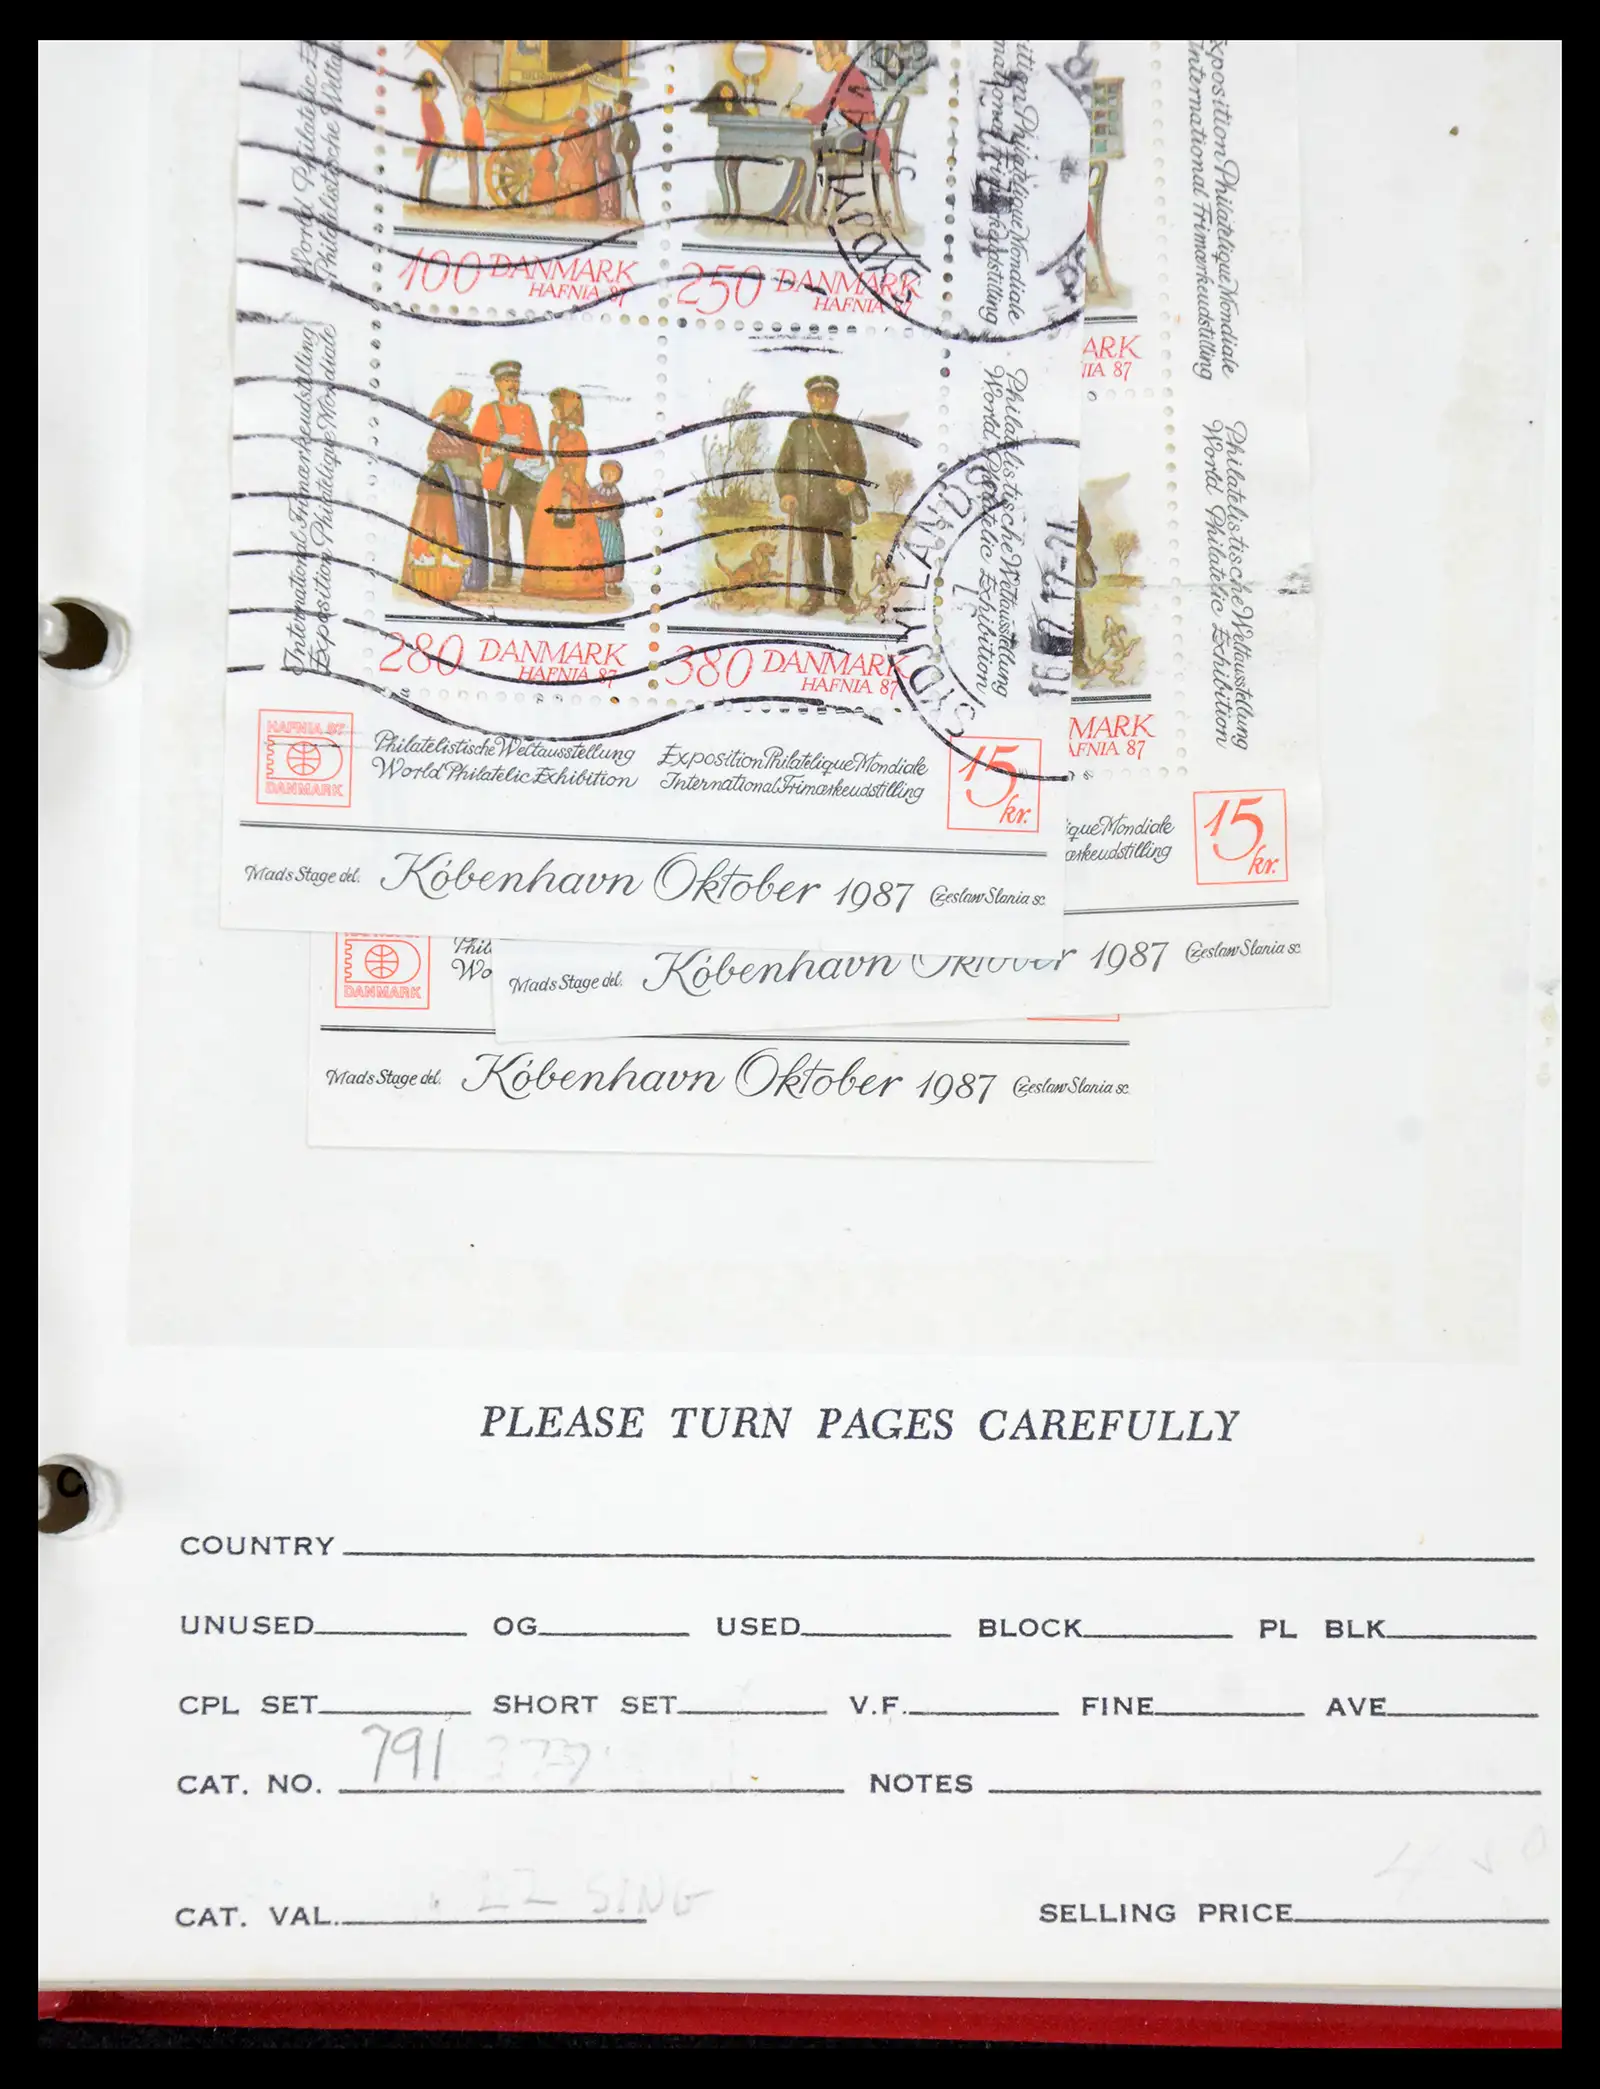 World Philatelic
Philatelistische Weltau
100 DANMARK
HAFNIA 87
250 DANMARK
HAFNIA 87
Philatelique Mondiale
Exposition Philatelique Mondiale
International Frimærkeudstilling
ARK
NIA 87
International Frimærkeudstilling
Exposition Philatelique Mondiale
280 DANMARK
HAFNIA 87
380 DANMARK
HAFNIA 87
SYDJYLLANDS
Philatelistische Weltausstellung
World Philatelic Exhibition
MARK
AFNIA 87
Philatelistische Weltausstellung
World Philatelic Exhibition
HAFNIA 87
DANMARK
Philatelistische Weltausstellung
World Philatelic Exhibition
Exposition Philatelique Mondiale
International Frimærkeudstilling
15 kr.
ique Mondiale
ærkeudstilling
15 kr.
Mads Stage del. København Oktober 1987 Czeslaw Slania sc.
DANMARK
Phil
Wo
Mads Stage del. København Oktober 1987 Czeslaw Slania sc.
Mads Stage del. København Oktober 1987 Czeslaw Slania sc.
PLEASE TURN PAGES CAREFULLY
COUNTRY
UNUSED OG USED BLOCK PL BLK
CPL SET SHORT SET V.F. FINE AVE
CAT. NO. 791 NOTES
CAT. VAL. SING SELLING PRICE